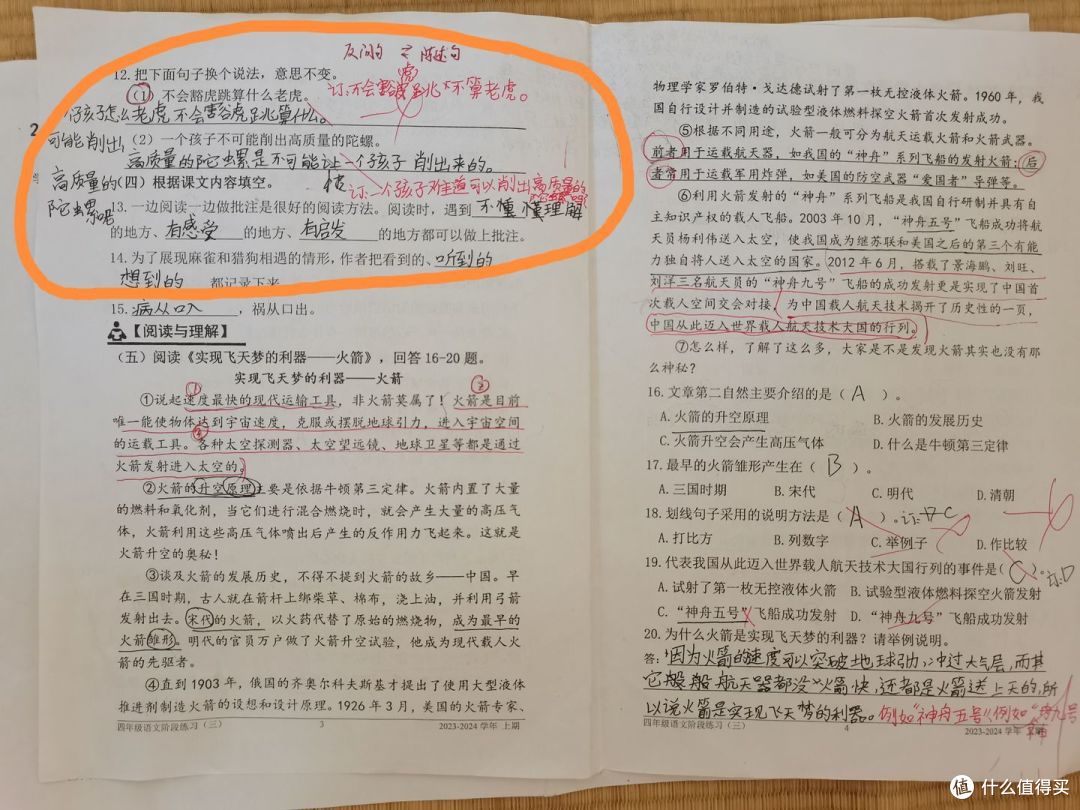 反问句 ⇄ 陈述句
12. 把下面句子换个说法，意思不变。
(1) 不会豁虎跳算什么老虎。
订：不会豁虎跳×不算老虎。
老虎不会豁虎跳算什么。
(2) 一个孩子不可能削出高质量的陀螺。
高质量的陀螺是不可能让一个孩子削出来的。
孩子怎么
可能削出
高质量的
陀螺呢
订：一个孩子难道可以削出高质量的
陀螺吗
(四) 根据课文内容填空。
13. 一边阅读一边做批注是很好的阅读方法。阅读时，遇到 不懂 理解
的地方、有感受 的地方、有启发 的地方都可以做上批注。
14. 为了展现麻雀和猎狗相遇的情形，作者把看到的、听到的
想到的 都记录下来
15. 病从口入，祸从口出。
【阅读与理解】
(五) 阅读《实现飞天梦的利器——火箭》，回答 16-20 题。
实现飞天梦的利器——火箭
①说起速度最快的现代运输工具，非火箭莫属了！火箭是目前
唯一能使物体达到宇宙速度，克服或摆脱地球引力，进入宇宙空间
的运载工具。各种太空探测器、太空望远镜、地球卫星等都是通过
火箭发射进入太空的。
②火箭的升空原理主要是依据牛顿第三定律。火箭内置了大量
的燃料和氧化剂，当它们进行混合燃烧时，就会产生大量的高压气
体，火箭利用这些高压气体喷出后产生的反作用力飞起来。这就是
火箭升空的奥秘！
③谈及火箭的发展历史，不得不提到火箭的故乡——中国。早
在三国时期，古人就在箭杆上绑柴草、棉布，浇上油，并利用弓箭
发射出去。宋代的火箭，以火药代替了原始的燃烧物，成为最早的
火箭雏形。明代的官员万户做了火箭升空试验，他成为现代载人火
箭的先驱者。
④直到 1903 年，俄国的齐奥尔科夫斯基才提出了使用大型液体
推进剂制造火箭的设想和设计原理。1926 年 3 月，美国的火箭专家、
四年级语文阶段练习（三） 3 2023-2024 学年 上期
物理学家罗伯特·戈达德试射了第一枚无控液体火箭。1960 年，我
国自行设计并制造的试验型液体燃料探空火箭首次发射成功。
⑤根据不同用途，火箭一般可分为航天运载火箭和火箭武器。
前者用于运载航天器，如我国的“神舟”系列飞船的发射火箭；后
者常用于运载军用炸弹，如美国的防空武器“爱国者”导弹等。
⑥利用火箭发射的“神舟”系列飞船是我国自行研制并具有自
主知识产权的载人飞船。2003 年 10 月，“神舟五号”飞船成功将航
天员杨利伟送入太空，使我国成为继苏联和美国之后的第三个有能
力独自将人送入太空的国家。2012 年 6 月，搭载了景海鹏、刘旺、
刘洋三名航天员的“神舟九号”飞船的成功发射更是实现了中国首
次载人空间交会对接，为中国载人航天技术揭开了历史性的一页，
中国从此迈入世界载人航天技术大国的行列。
⑦怎么样，了解了这么多，大家是不是发现火箭其实也没有那
么神秘？
16. 文章第二自然主要介绍的是（ A ）。
A. 火箭的升空原理 B. 火箭的发展历史
C. 火箭升空会产生高压气体 D. 什么是牛顿第三定律
17. 最早的火箭雏形产生在（ B ）。
A. 三国时期 B. 宋代 C. 明代 D. 清朝
18. 划线句子采用的说明方法是（ A ）。订：C
A. 打比方 B. 列数字 C. 举例子 D. 作比较
19. 代表我国从此迈入世界载人航天技术大国行列的事件是（ C ）。订：D
A. 试射了第一枚无控液体火箭 B. 试验型液体燃料探空火箭发射
C. “神舟五号”飞船成功发射 D. “神舟九号”飞船成功发射
20. 为什么火箭是实现飞天梦的利器？请举例说明。
答：因为火箭的速度可以突破地球引力，冲过大气层，而其
它般般航天器都没火箭快，还都是火箭送上天的，所
以说火箭是实现飞天梦的利器。例如“神舟五号”，例如“神九号
四年级语文阶段练习（三） 4 2023-2024 学年 上期
值 什么值得买